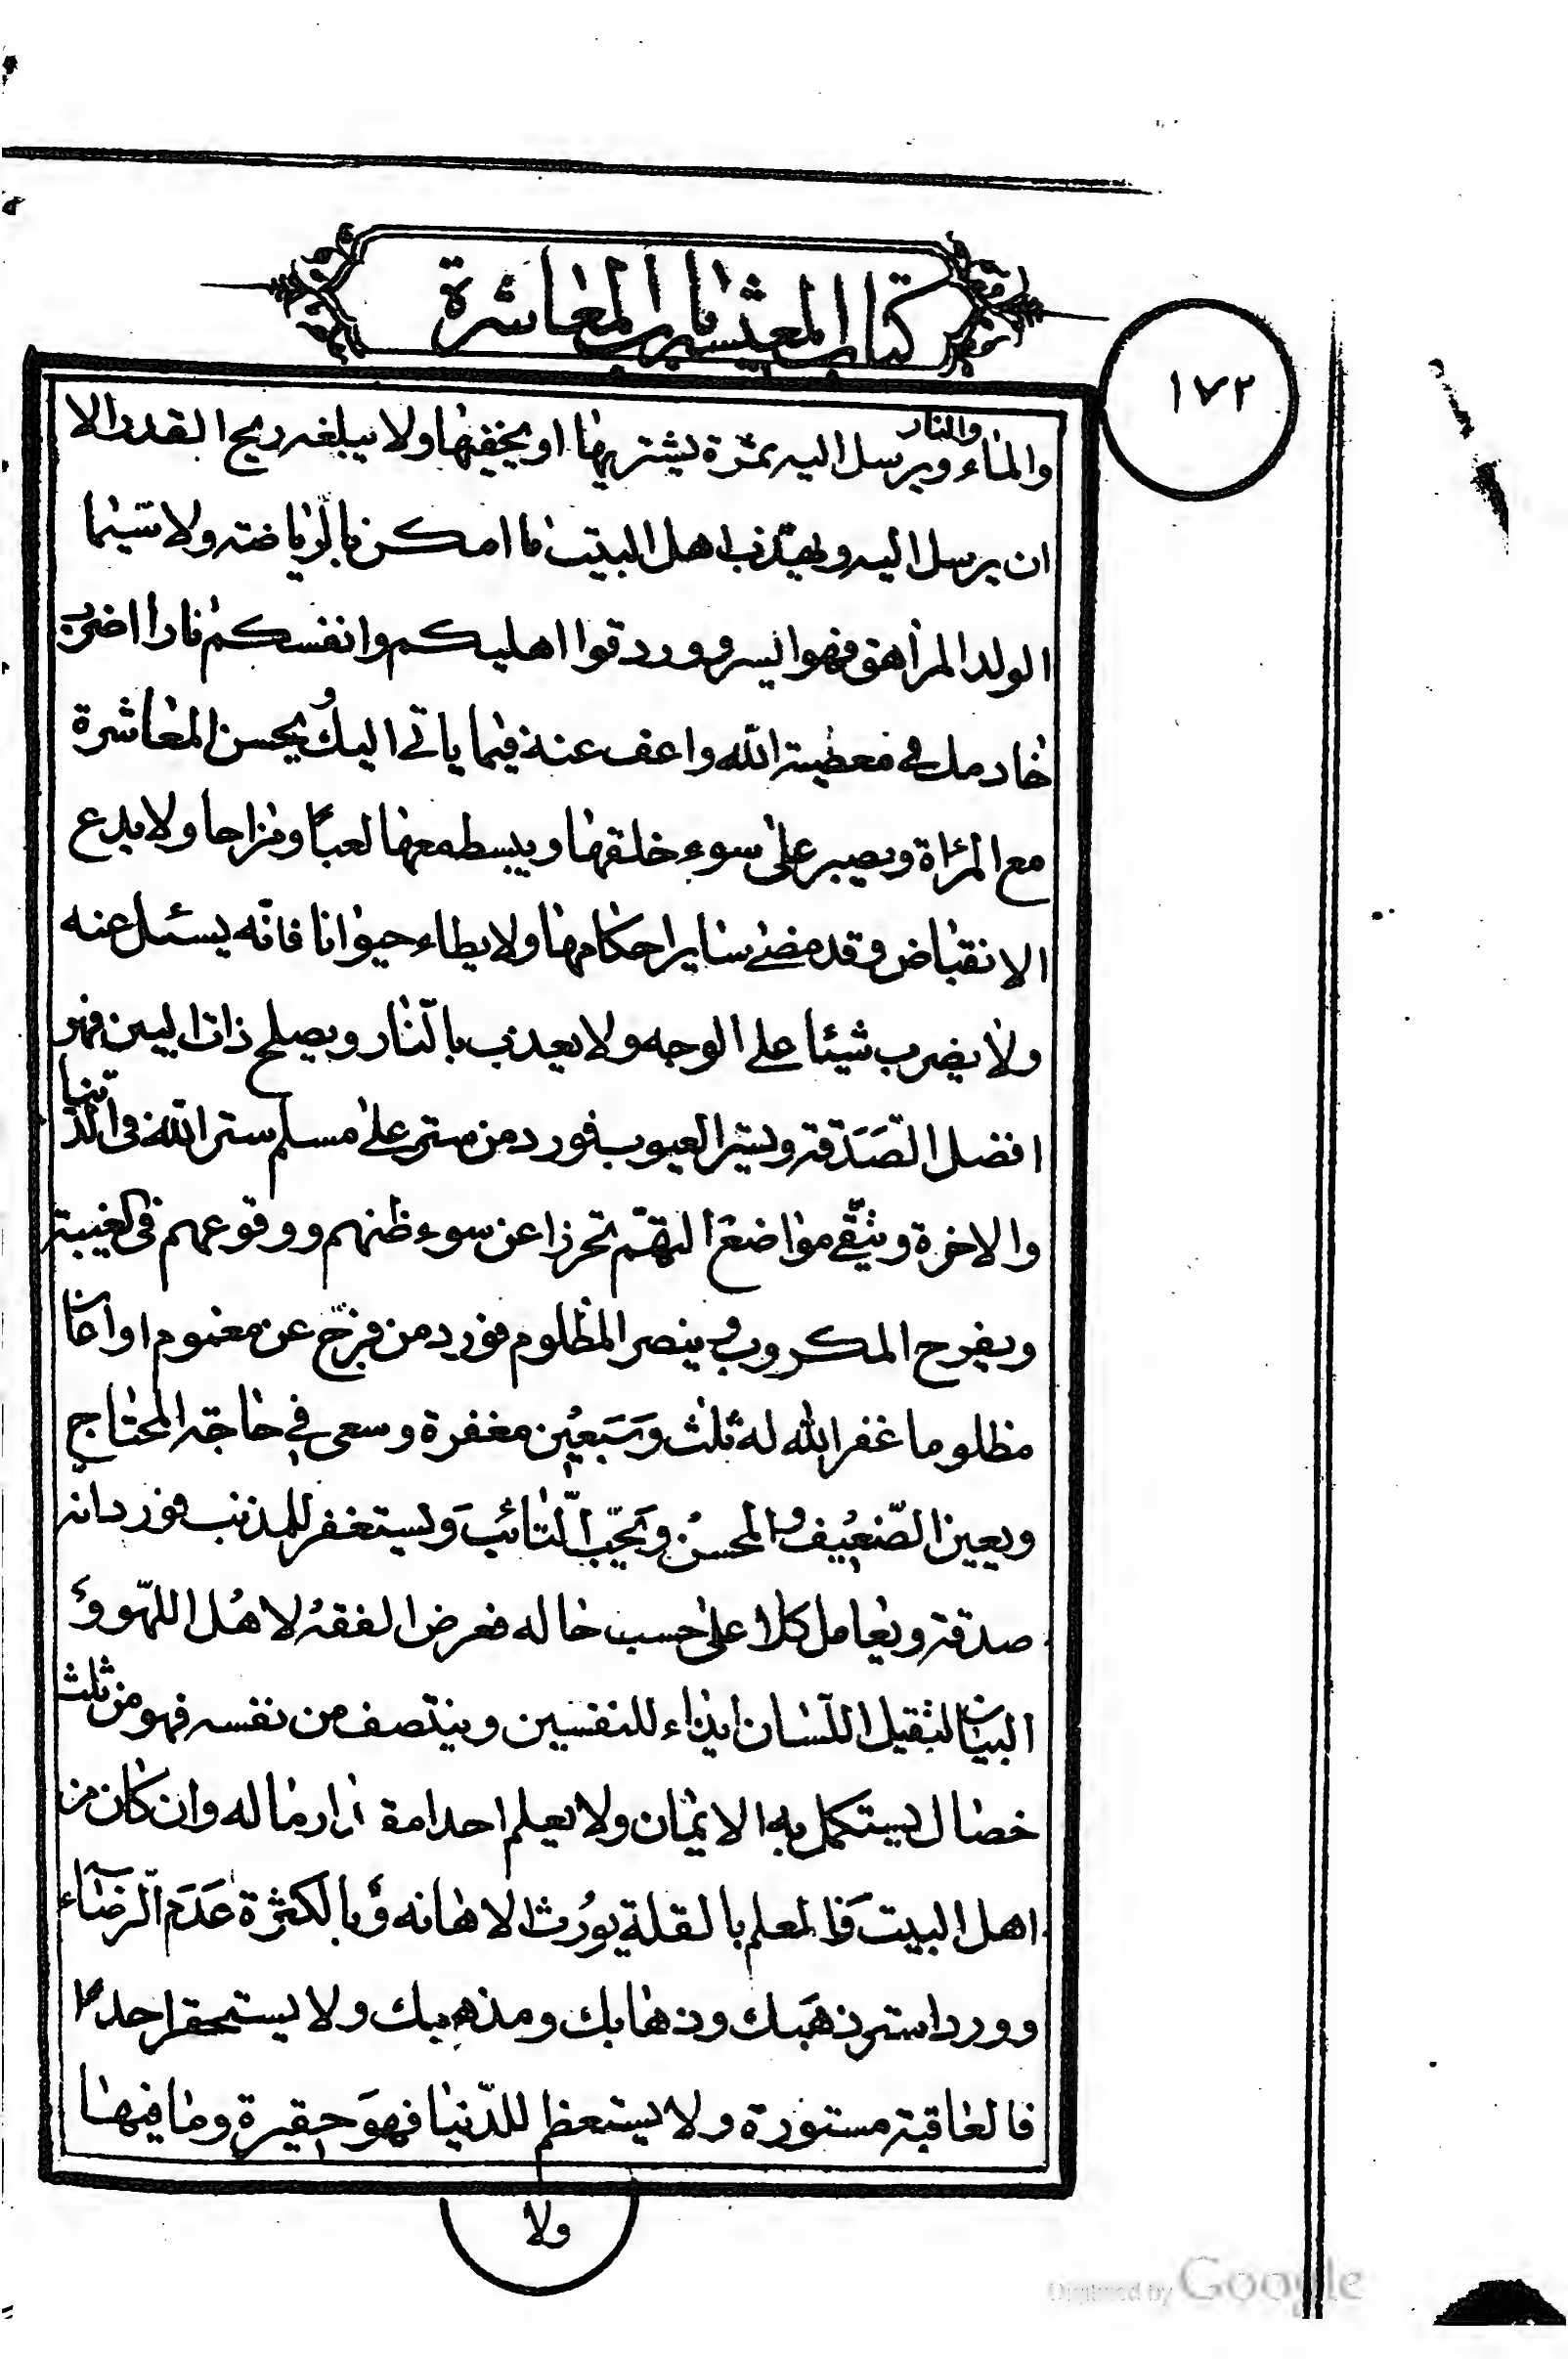 كتاب المعيشة باب المعاشرة
١٧٢
والنار
والماء ويرسل اليه ثمرة يشتريها او يخفيها ولا يبلغه ريح القدر الا
ان يرسل اليه ويهذب اهل البيت ما امكن بالرياضة ولا سيما
الولد المراهق فهو ايسر وورد قوا اهليكم وانفسكم نارا اضرب
خادمك في معصية الله واعف عنه فيما ياتى اليك ويحسن المعاشرة
مع المرأة ويصبر على سوء خلقها ويبسط معها لعبا ومزاحا ولا يدع
الانقباض وقد مضى ساير احكامها ولا يطاء حيوانا فانه يسئل عنه
ولا يضرب شيئا على الوجه ولا يعذب بالنار ويصلح ذات البين فهو
افضل الصدقة ويستر العيوب فورد من ستر على مسلم ستر الله فى الدنيا
والاخرة ويتقى مواضع التهم تحرزا عن سوء ظنهم ووقوعهم فى الغيبة
ويفرح المكروب وينصر المظلوم فورد من فرج عن مغموم او اعان
مظلوما غفر الله له ثلث وسبعين مغفرة وسعى في حاجة المحتاج
ويعين الضعيف والمحسن ويحب التائب ويستغفر للمذنب فورد انه
صدقة ويعامل كلا على حسب حاله فعرض الفقه لاهل اللهو و
البيان لثقيل اللسان ايذاء للنفسين وينتصف من نفسه فهو من ثلث
خصال يستكمل به الايمان ولا يعلم احدا مقدار ماله وان كان من
اهل البيت فالمعلم بالقلة يورث الاهانه وبالكثرة عدم الرضاء
وورد استر ذهبك وذهابك ومذهبك ولا يستحقر احدا
فالعاقبة مستورة ولا يستعظم للدنيا فهو حقيرة وما فيها
ولا
Digitized by Google